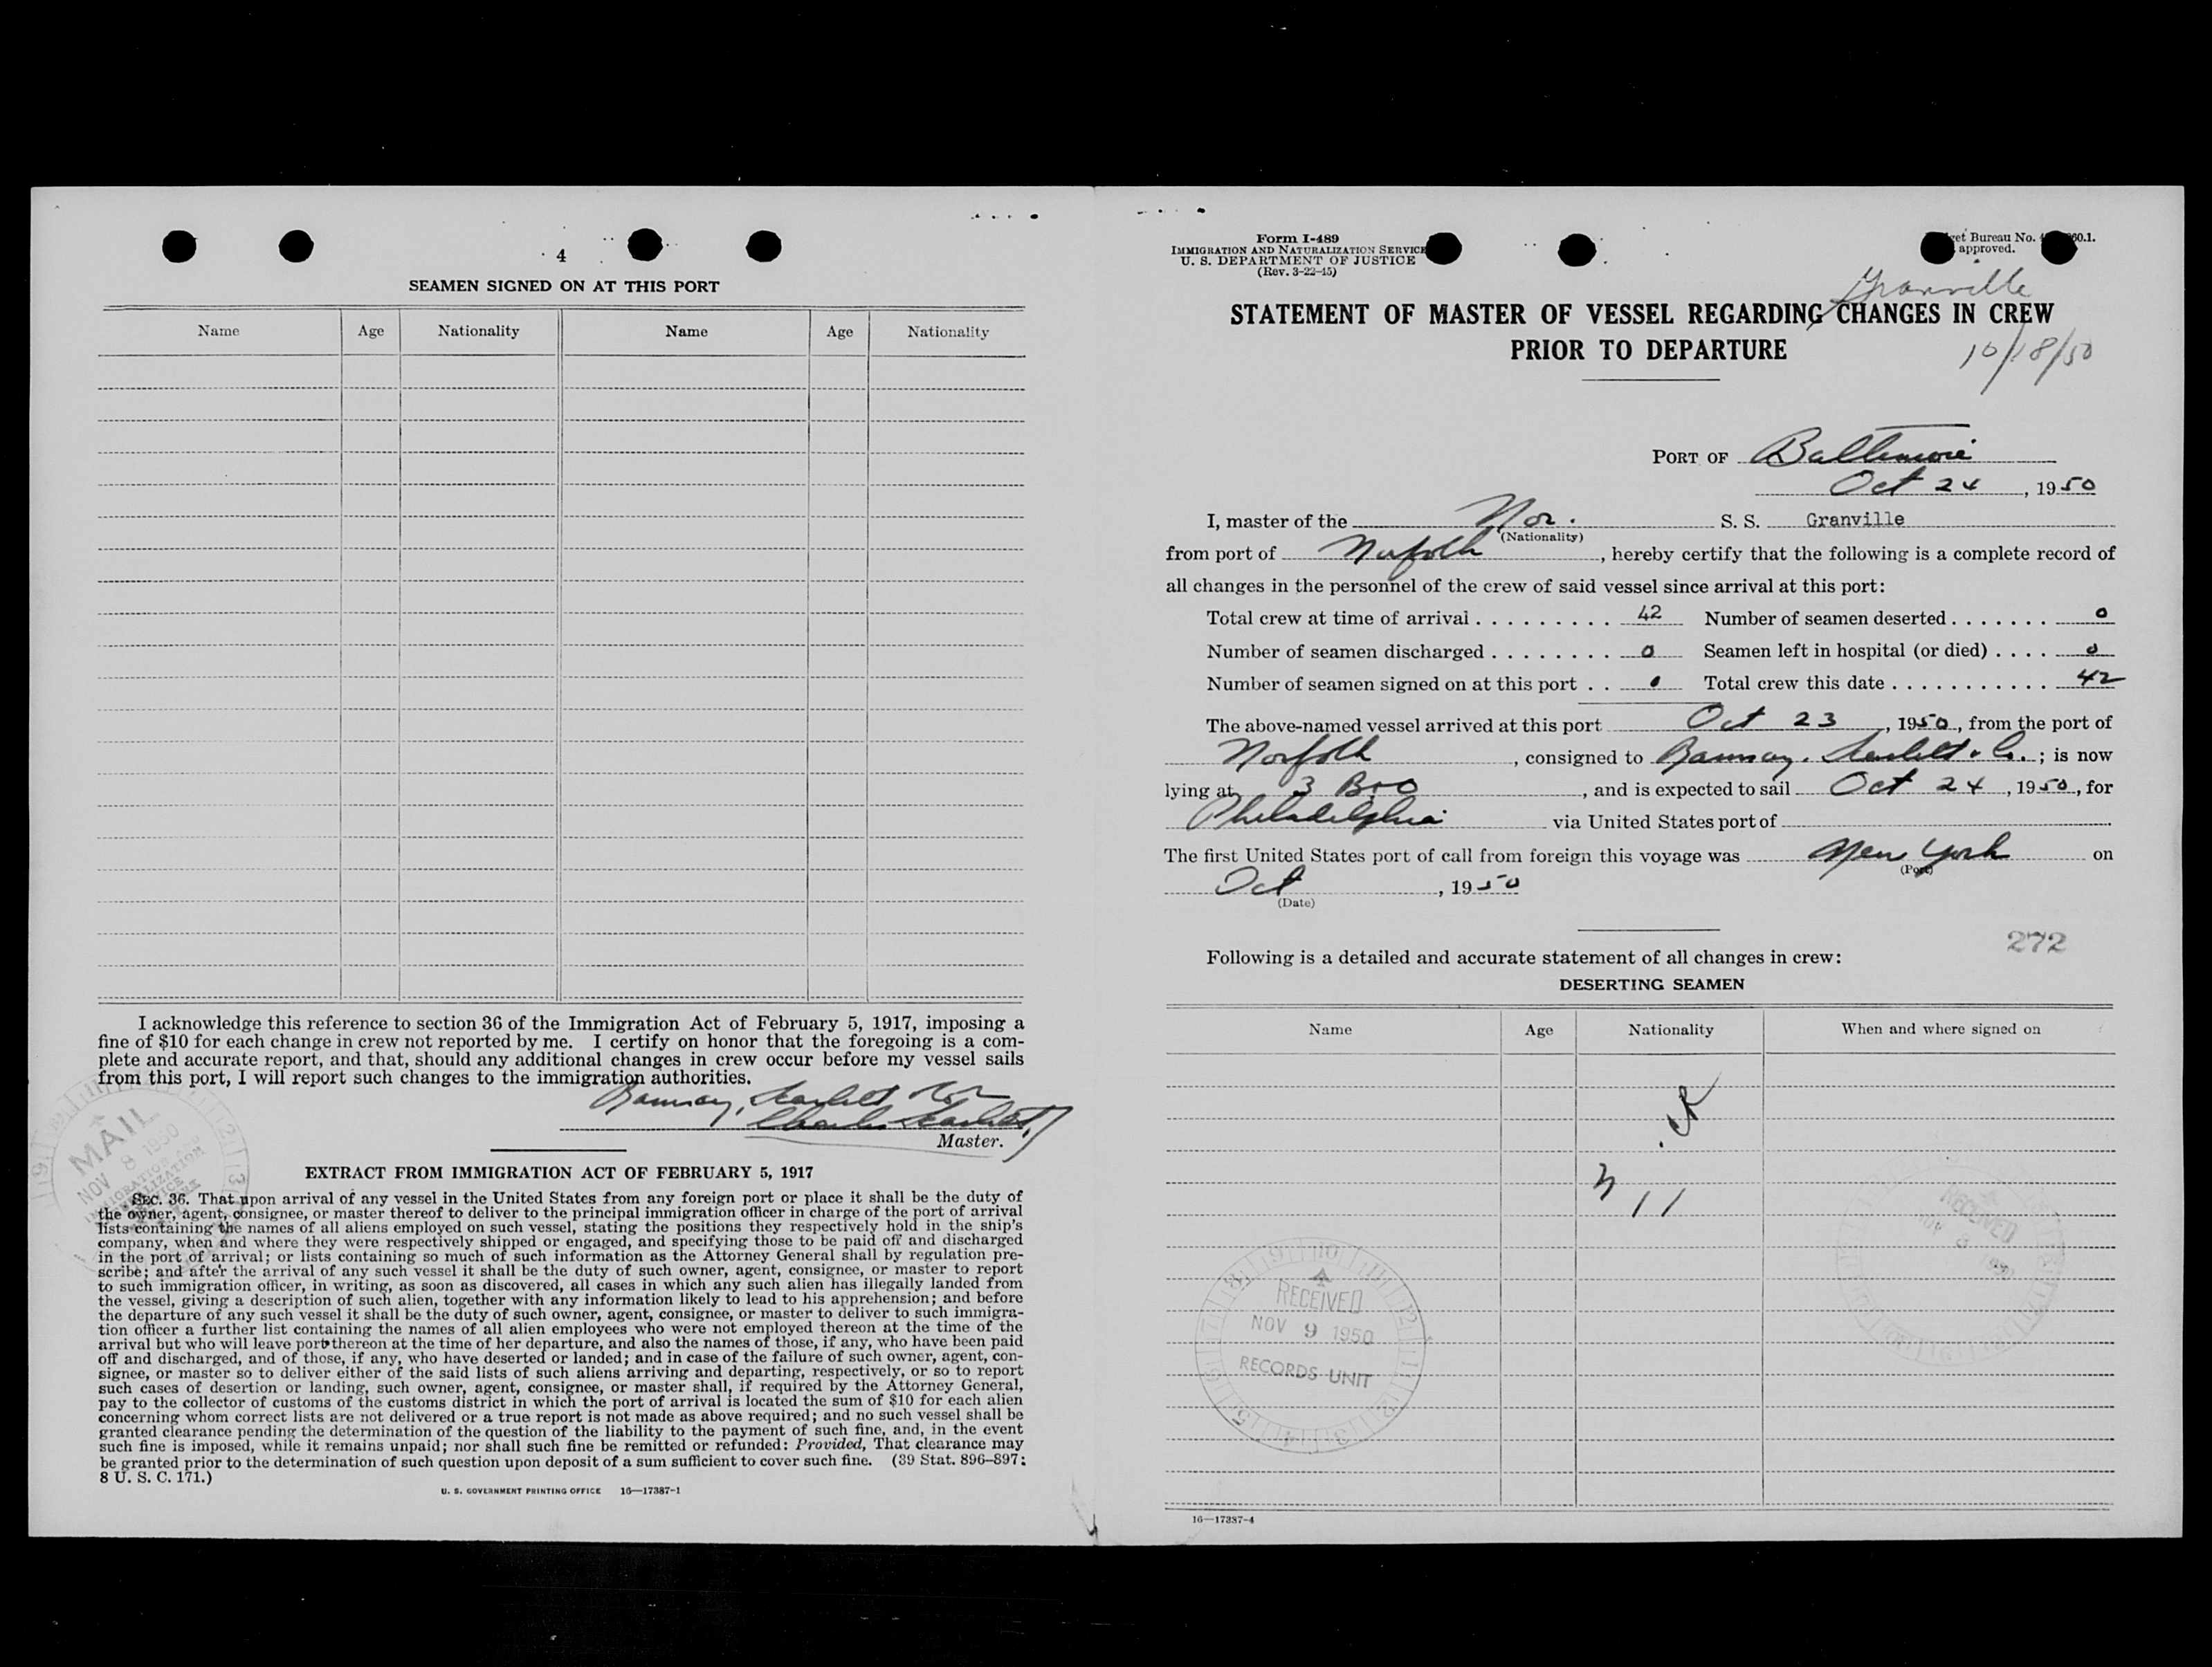 4
SEAMEN SIGNED ON AT THIS PORT
Name Age Nationality Name Age Nationality
I acknowledge this reference to section 36 of the Immigration Act of February 5, 1917, imposing a
fine of $10 for each change in crew not reported by me. I certify on honor that the foregoing is a com-
plete and accurate report, and that, should any additional changes in crew occur before my vessel sails
from this port, I will report such changes to the immigration authorities.
Ramsay, Scarlett & Co
Charles Scarlett
Master.
MAIL
NOV 8 1950
EXTRACT FROM IMMIGRATION ACT OF FEBRUARY 5, 1917
SEC. 36. That upon arrival of any vessel in the United States from any foreign port or place it shall be the duty of
the owner, agent, consignee, or master thereof to deliver to the principal immigration officer in charge of the port of arrival
lists containing the names of all aliens employed on such vessel, stating the positions they respectively hold in the ship's
company, when and where they were respectively shipped or engaged, and specifying those to be paid off and discharged
in the port of arrival; or lists containing so much of such information as the Attorney General shall by regulation pre-
scribe; and after the arrival of any such vessel it shall be the duty of such owner, agent, consignee, or master to report
to such immigration officer, in writing, as soon as discovered, all cases in which any such alien has illegally landed from
the vessel, giving a description of such alien, together with any information likely to lead to his apprehension; and before
the departure of any such vessel it shall be the duty of such owner, agent, consignee, or master to deliver to such immigra-
tion officer a further list containing the names of all alien employees who were not employed thereon at the time of the
arrival but who will leave port thereon at the time of her departure, and also the names of those, if any, who have been paid
off and discharged, and of those, if any, who have deserted or landed; and in case of the failure of such owner, agent, con-
signee, or master so to deliver either of the said lists of such aliens arriving and departing, respectively, or so to report
such cases of desertion or landing, such owner, agent, consignee, or master shall, if required by the Attorney General,
pay to the collector of customs of the customs district in which the port of arrival is located the sum of $10 for each alien
concerning whom correct lists are not delivered or a true report is not made as above required; and no such vessel shall be
granted clearance pending the determination of the question of the liability to the payment of such fine, and, in the event
such fine is imposed, while it remains unpaid; nor shall such fine be remitted or refunded: Provided, That clearance may
be granted prior to the determination of such question upon deposit of a sum sufficient to cover such fine. (39 Stat. 896-897;
8 U. S. C. 171.)
U. S. GOVERNMENT PRINTING OFFICE 16—17387-1
Form I-489
IMMIGRATION AND NATURALIZATION SERVICE
U. S. DEPARTMENT OF JUSTICE
(Rev. 3-22-45)
Bureau No.
approved.
Granville
STATEMENT OF MASTER OF VESSEL REGARDING CHANGES IN CREW
PRIOR TO DEPARTURE
10/18/50
PORT OF Baltimore
Oct 24, 1950
I, master of the Nor. S. S. Granville
(Nationality)
from port of Norfolk, hereby certify that the following is a complete record of
all changes in the personnel of the crew of said vessel since arrival at this port:
Total crew at time of arrival . . . . . . . . . 42 Number of seamen deserted . . . . . . . 0
Number of seamen discharged . . . . . . . . 0 Seamen left in hospital (or died) . . . . 0
Number of seamen signed on at this port . . 0 Total crew this date . . . . . . . . . . . 42
The above-named vessel arrived at this port Oct 23, 1950, from the port of
Norfolk, consigned to Ramsay, Scarlett & Co.; is now
lying at 3 Bro, and is expected to sail Oct 24, 1950, for
Philadelphia via United States port of
The first United States port of call from foreign this voyage was New York on
(Port)
Oct, 1950
(Date)
272
Following is a detailed and accurate statement of all changes in crew:
DESERTING SEAMEN
Name Age Nationality When and where signed on
RECEIVED
NOV 9 1950
RECORDS UNIT
RECEIVED
NOV 8 1950
16—17387-4